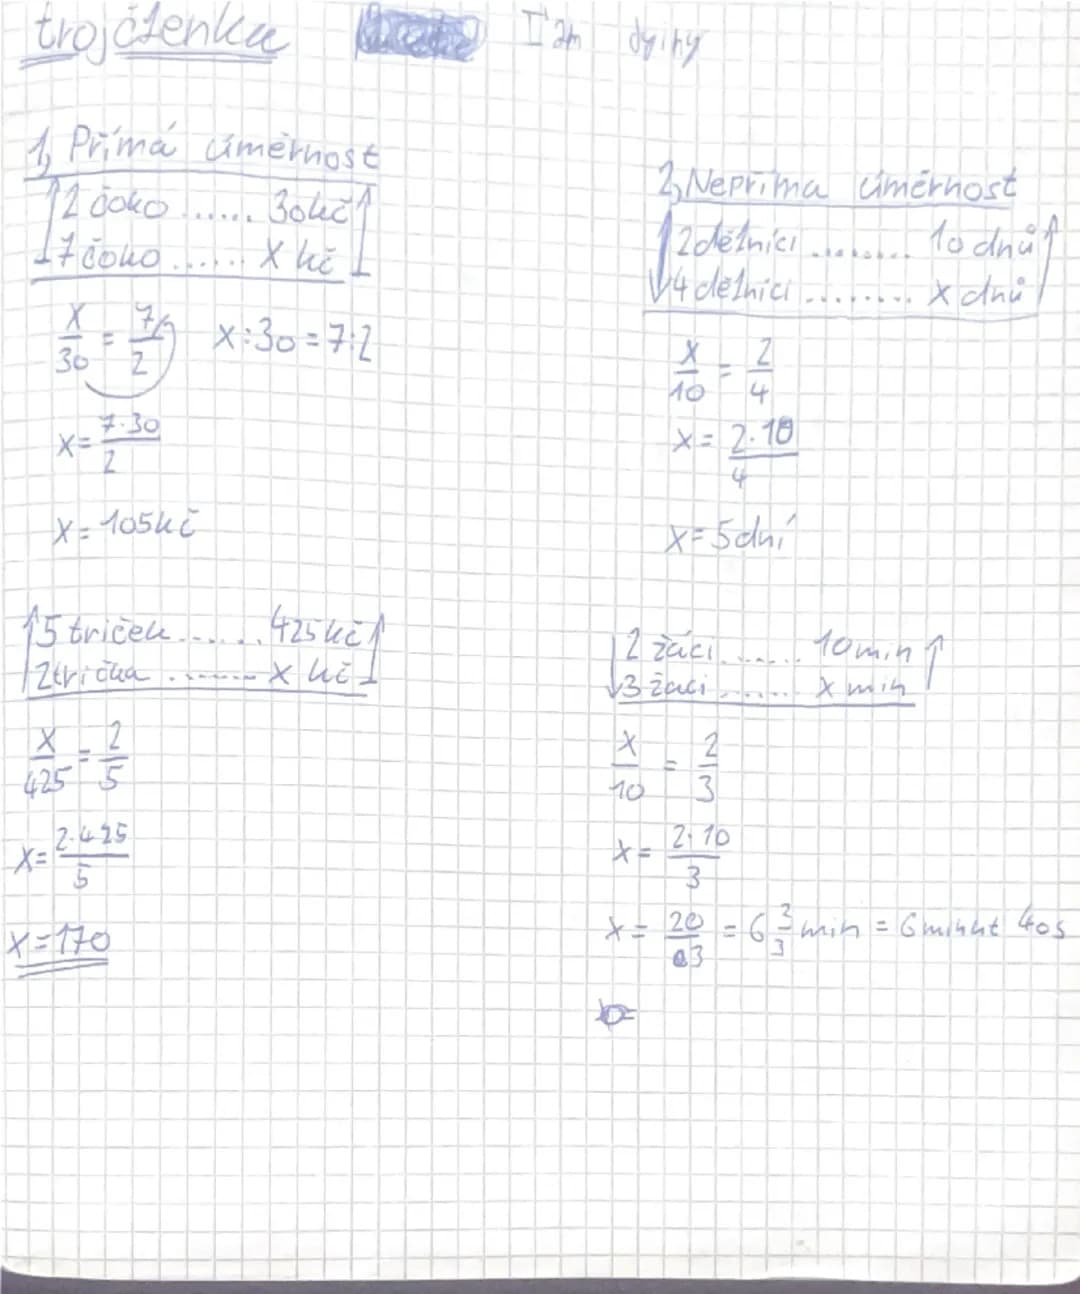 trojčlenka I am dying
1, Přímá úměrnost
2 čoko ...... 30kč
7 čoko ...... X kč
X/30 = 7/2 x:30=7:2
x= 7·30/2
x=105kč
5 triček ...... 425kč
2trička ...... x kč
x/425 = 2/5
x= 2·425/5
x=170
2, Nepříma úměrnost
2dělníci ........ 10 dnů
4 dělníci ........ x dnů
x/10 = 2/4
x= 2·10/4
x=5dní
2 žáci ...... 10min
3 žaci ...... x min
x/10 = 2/3
x= 2·10/3
x= 20/3 = 6 2/3 min = 6minut 40s